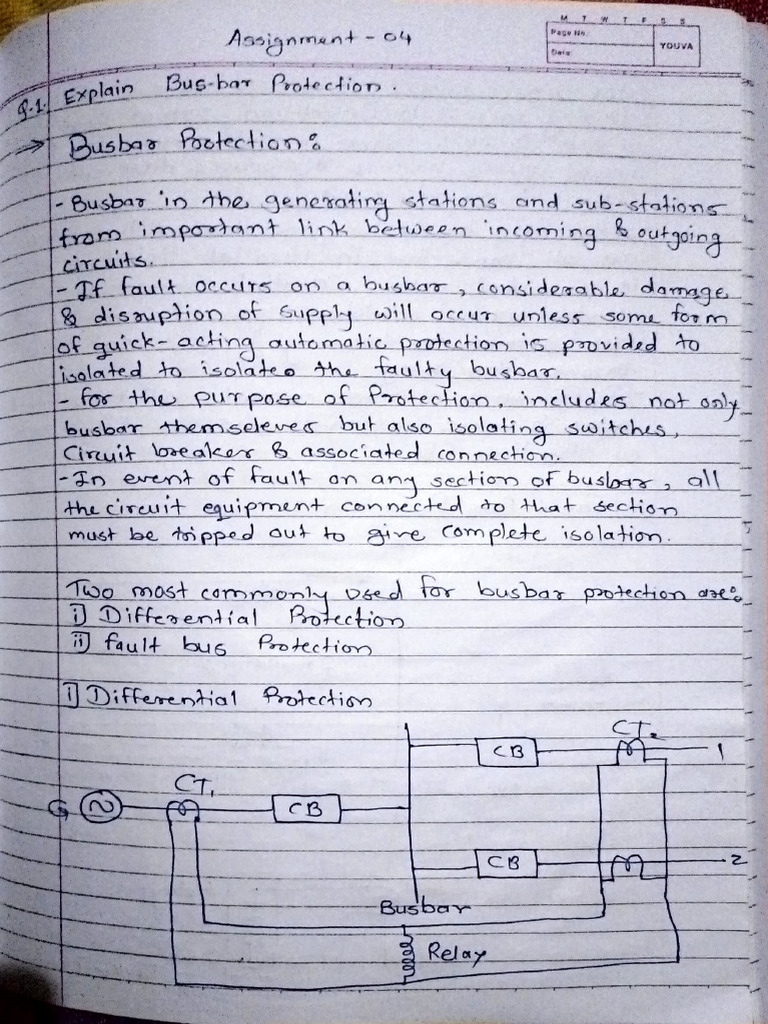 Assignment - 04
M T W T F S S
Page No.
Date
YOUVA
Q.1. Explain Bus-bar Protection.
→ Busbar Protection:
- Busbar in the generating stations and sub-stations
from important link between incoming & outgoing
circuits.
- If fault occurs on a busbar, considerable damage
& disruption of supply will occur unless some form
of quick-acting automatic protection is provided to
isolated to isolateo the faulty busbar.
- for the purpose of Protection, includes not only
busbar themselever but also isolating switches,
Circuit breaker & associated connection.
- In event of fault on any section of busbar, all
the circuit equipment connected to that section
must be tripped out to give complete isolation.
Two most commonly used for busbar protection are:
i) Differential Protection
ii) fault bus Protection
i) Differential Protection
CT2
CB
1
CT1
G
CB
CB
2
Busbar
Relay